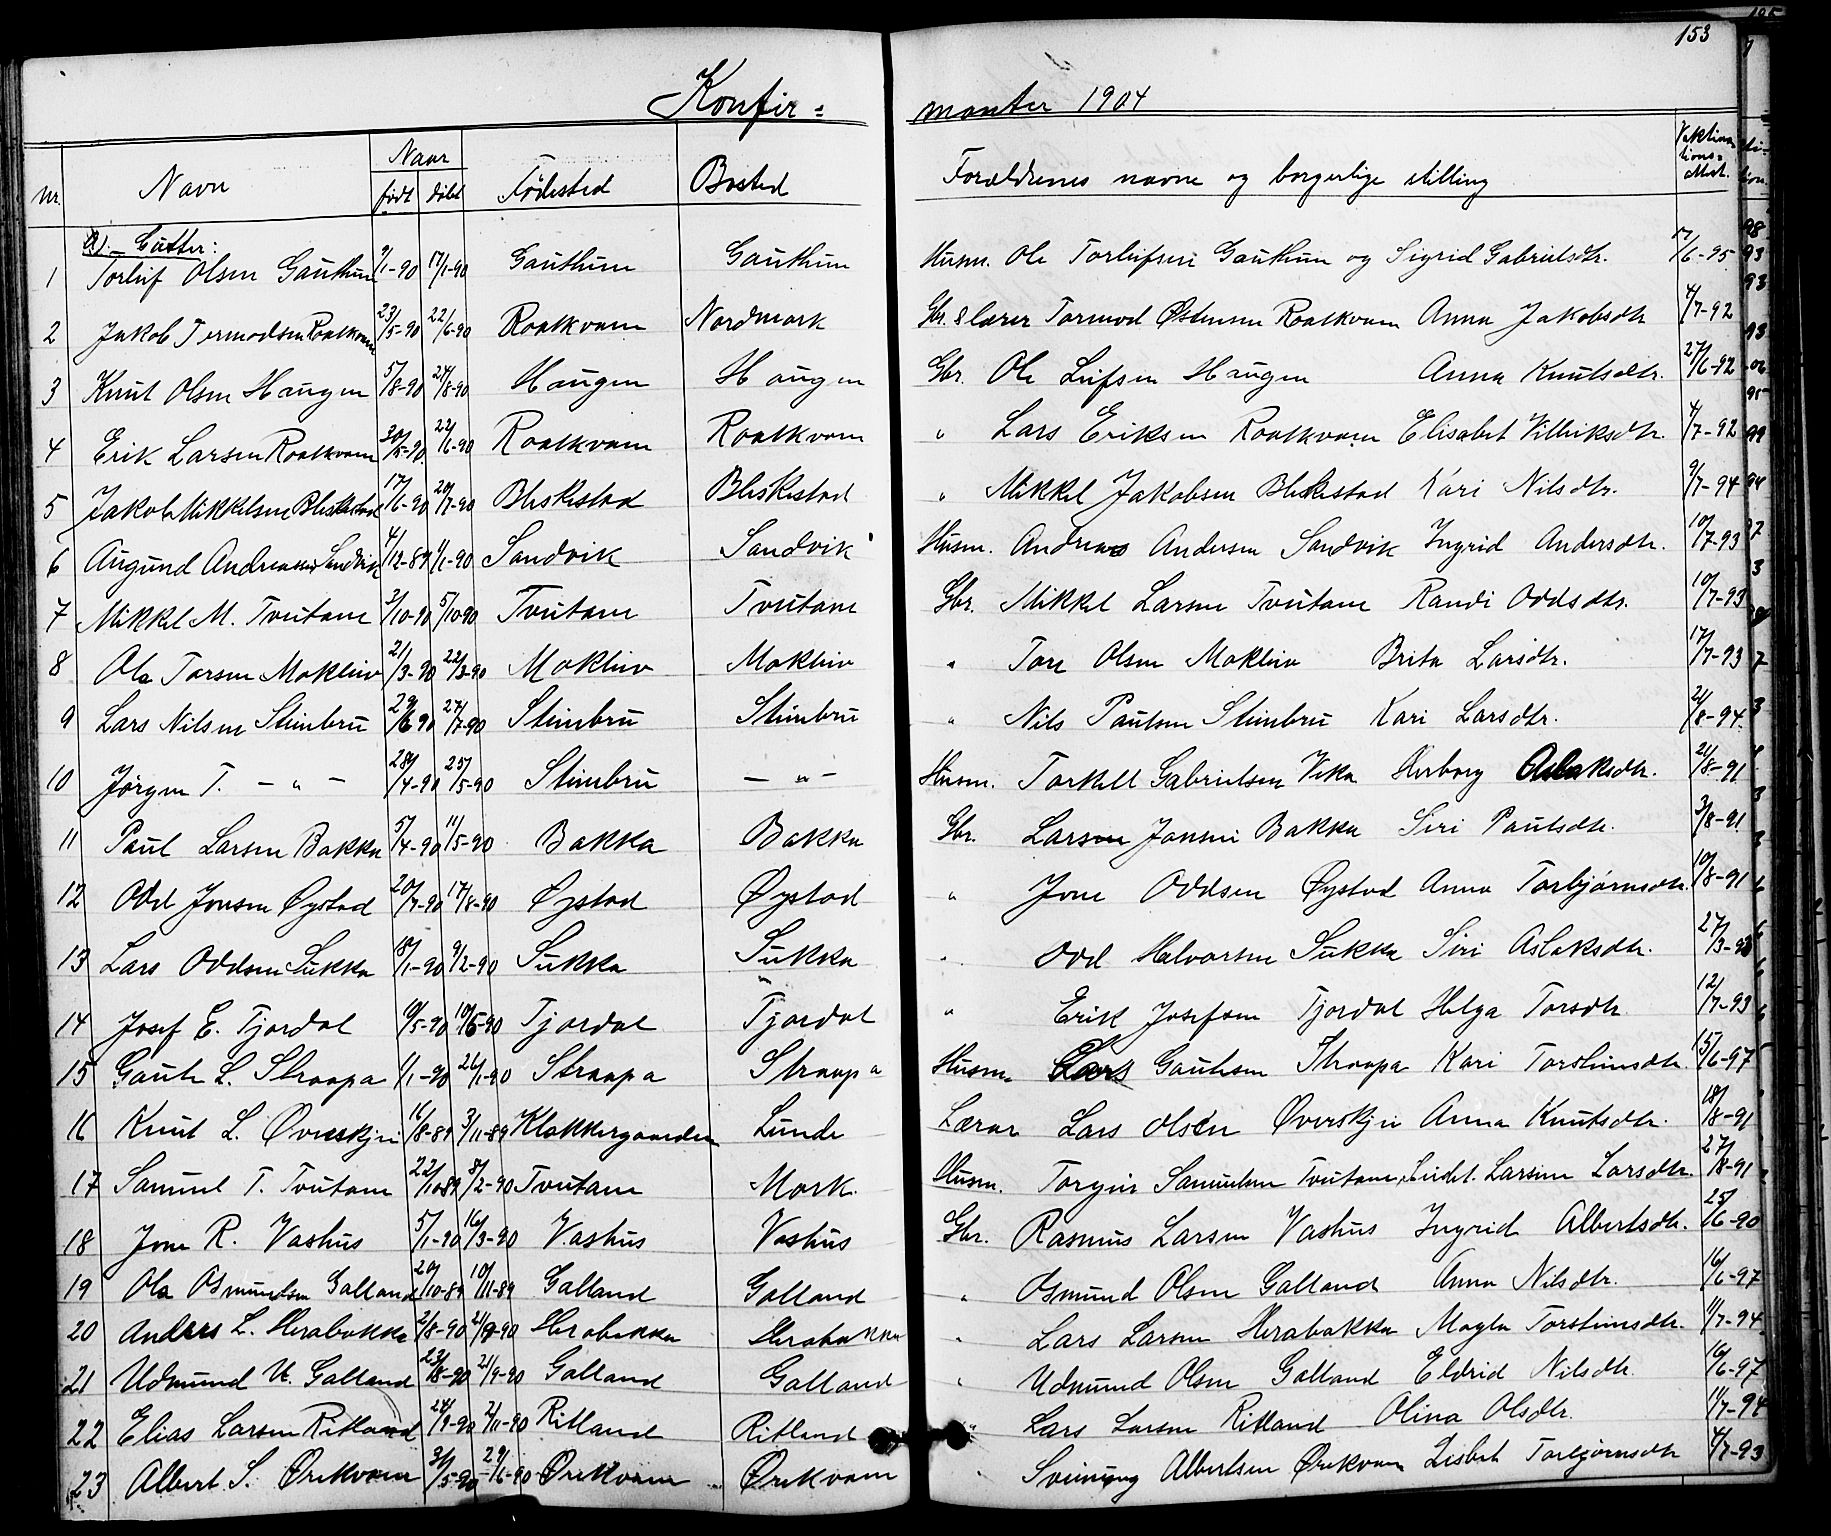 153
Konfir = manter 1904
Nr. Navn Naar født døbt Fødested Bosted Forældrenes navne og borgerlige stilling Vaktina-tions-attest.
a).- Gutter:
1 Torleif Olsen Gauthun 9/1-90 17/1-90 Gauthun Gauthun Husm. Ole Torleifsen Gauthun og Sigrid Gabrielsdtr. 17/6-95
2 Jakob Tormodsen Roalkvam 23/5-90 22/6-90 Roalkvam Nordmork Gbr. & lærer Tormod Østensen Roalkvam Anna Jakobsdtr 4/7-92
3 Knut Olsen Haugen 5/8-90 24/8-90 Haugen Haugen Gbr. Ole Leifsen Haugen Anna Knutsdtr. 27/6-92
4 Erik Larsen Roalkvam 30/5-90 22/6-90 Roalkvam Roalkvam " Lars Eriksen Roalkvam Elisabet Villeiksdtr. 4/7-92
5 Jakob Mikkelsen Bleskestad 17/6-90 20/7-90 Bleskestad Bleskestad " Mikkel Jakobsen Bleskestad Kari Nilsdtr. 9/7-94
6 Augund Andreassen Sandvik 4/12-89 1/1-90 Sandvik Sandvik Husm. Andreas Andersen Sandvik Ingrid Andersdtr. 10/7-93
7 Mikkel M. Tveitane 3/10-90 5/10-90 Tveitane Tveitane Gbr. Mikkel Larsen Tveitane Randi Oddsdtr. 10/7-93
8 Ola Torsen Mokleiv 2/3-90 22/3-90 Mokleiv Mokleiv " Tore Olsen Mokleiv Brita Larsdtr. 17/7-93
9 Lars Nilsen Steinbru 29/6 90 27/7-90 Steinbru Steinbru " Nils Paulsen Steinbru Kari Larsdtr. 2/8-94.
10 Jørgen T. - " - 28/4-90 25/5-90 Steinbru - " - Husm. Torkell Gabrielsen Vika Herborg Aslaksdtr. 21/8-91
11 Paul Larsen Bakka 5/4-90 11/5-90 Bakka Bakka Gbr. Larsen Jonsen Bakka Siri Paulsdtr. 3/8-91
12 Odd Jonsen Øystad 20/7-90 17/8-90 Øystad Øystad " Jone Oddsen Øystad Anna Torbjørnsdtr. 10/8-91
13 Lars Oddsen Sukka 18/1-90 9/2-90 Sukka Sukka " Odd Halvorsen Sukka Siri Aslaksdtr. 27/3-93
14 Josef E. Fjordal 10/5-90 10/5-90 Fjordal Fjordal " Erik Josefsen Fjordal Helga Torsdtr. 12/7-93
15 Gaute L. Straapa 1/1-90 26/1-90 Straapa Straapa Husm. Lars Gautesen Straapa Kari Torsteinsdtr. 15/6-97
16 Knut L. Øverskjei 16/8-89 3/11-89 Klokkergaarden Lunde Lærer Lars Olsen Øverskjei Anna Knutsdtr. 18/8-91
17 Samuel T. Tveitane 22/10-89 8/2-90 Tveitane Mork. Husm. Torgeir Samuelsen Tveitane, Larsine Larsdtr. 27/8-91
18 Jone R. Vashus 5/1-90 16/3-90 Vashus Vashus Gbr. Rasmus Larsen Vashus Ingrid Albertsdtr. 25/6-90
19 Ola Osmundsen Galland 20/10-89 10/11-89 Galland Galland " Osmund Olsen Galland Anna Nilsdtr. 16/6-97
20 Anders L. Herabakka 2/8-90 21/9-90 Herabakka Herabakka " Lars Larsen Herabakka Magla Torsteinsdtr. 11/7-94.
21 Udmund U. Galland 23/8-90 21/9-90 Galland Galland " Udmund Olsen Galland Eldrid Nilsdtr. 16/6-97
22 Elias Larsen Ritland 24/9-90 2/11-90 Ritland Ritland Lars Larsen Ritland Olina Olsdtr. 11/7-94
23 Albert S. Ørekvam 31/5-90 29/6-90 Ørekvam Ørekvam Sveinung Albertsen Ørekvam Lisbet Torbjørnsdtr 4/7-93